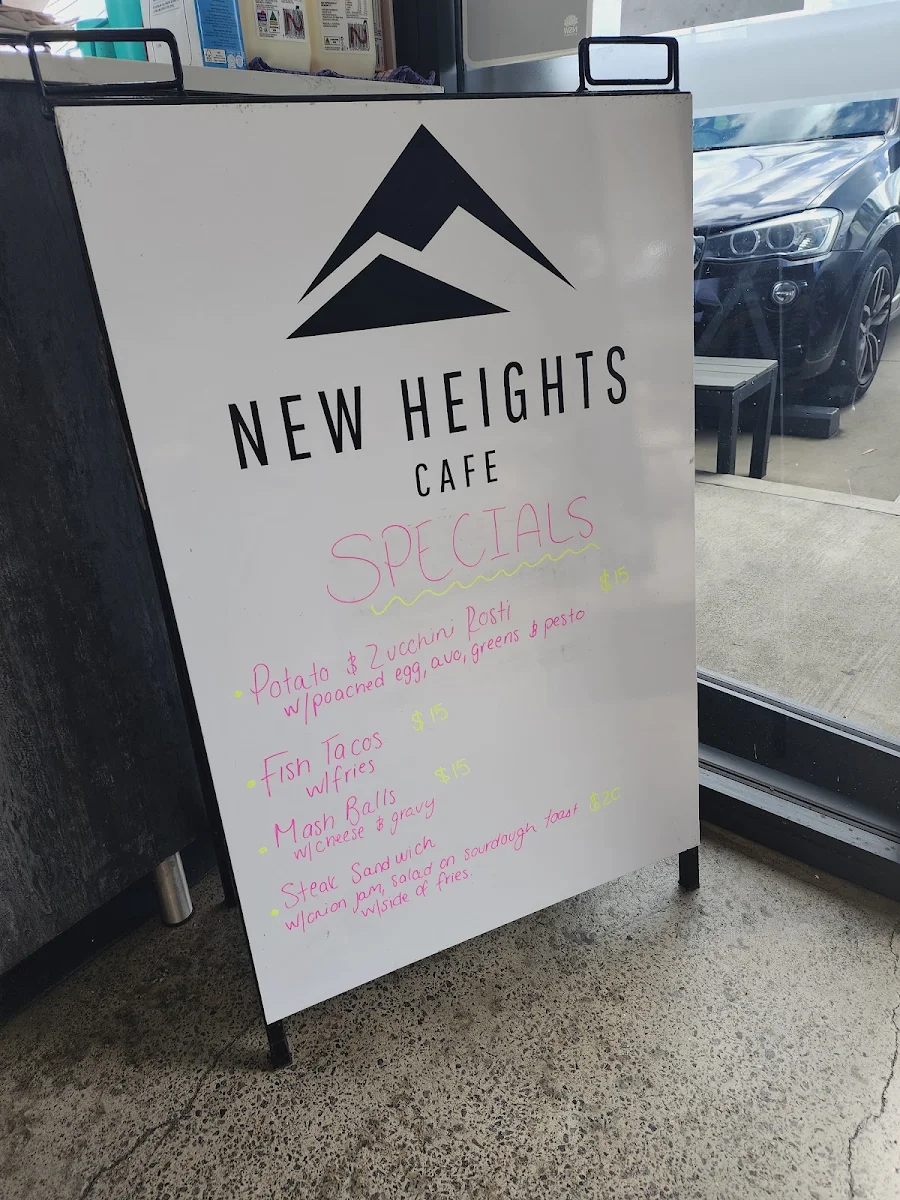 NEW HEIGHTS
CAFE
SPECIALS
$15
• Potato & Zucchini Rosti
w/poached egg, avo, greens & pesto
$15
• Fish Tacos
w/fries
$15
• Mash Balls
w/cheese & gravy
$20
• Steak Sandwich
w/onion jam, salad on sourdough toast
w/side of fries.